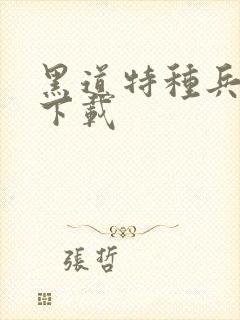 黑道特種兵
下載
張哲